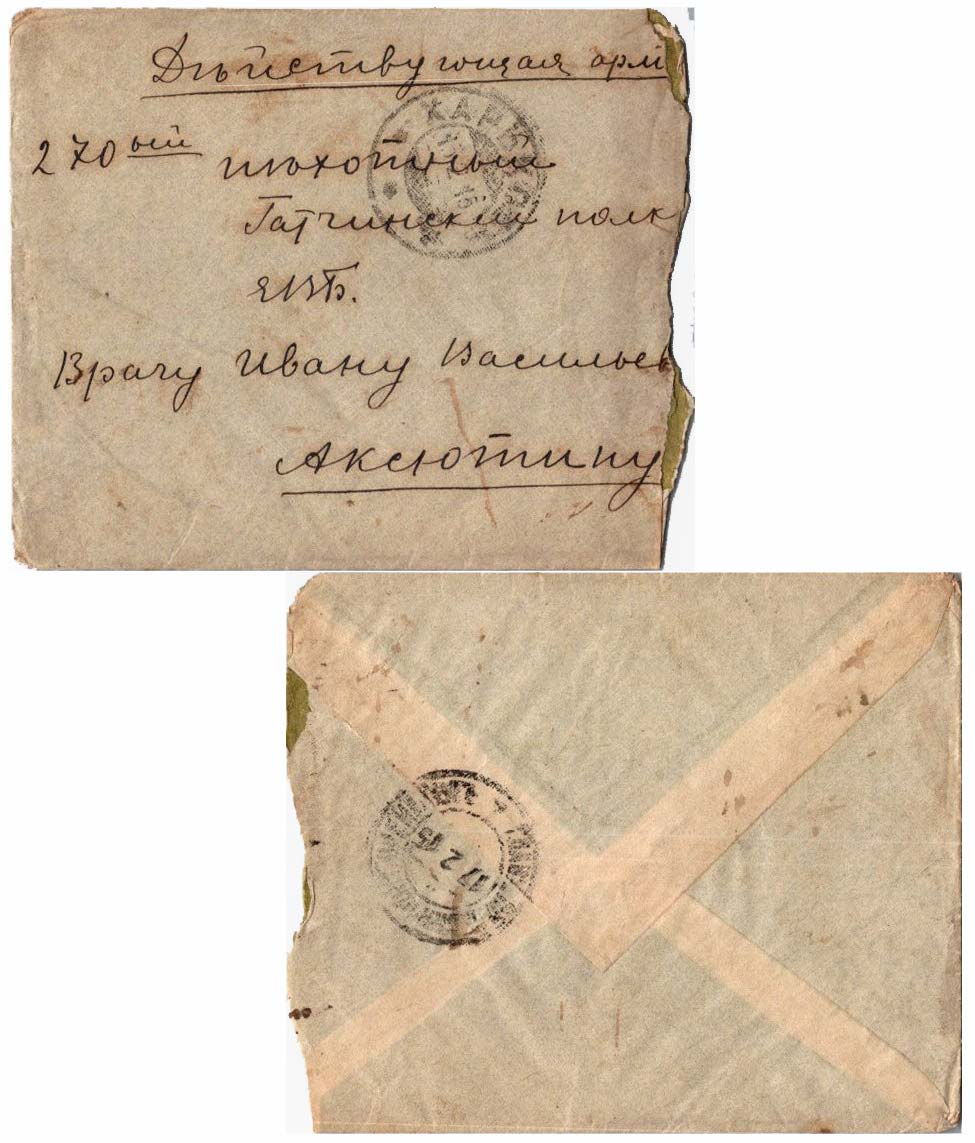 Дѣйствующая арм
ХАРЬКОВЪ
270ый пѣхотный
Гатчинский полк
Врачу Ивану Васильев
Аксютину
17 2 15